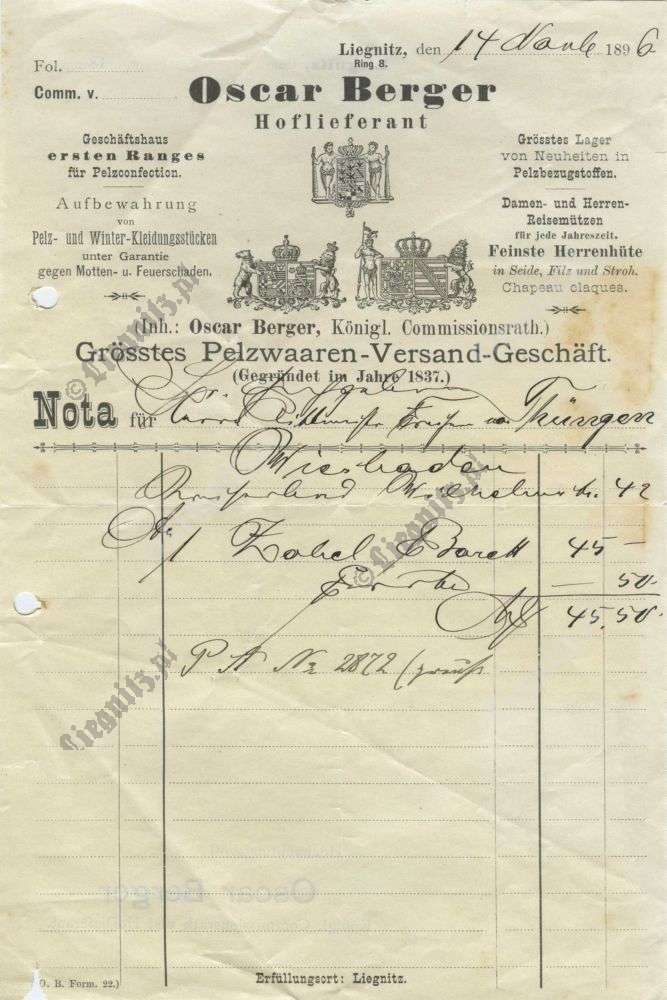 Liegnitz, den 14 Novb 1896
Ring 8.
Fol.
Comm. v.
Oscar Berger
Hoflieferant
Geschäftshaus
ersten Ranges
für Pelzconfection.
Aufbewahrung
von
Pelz- und Winter-Kleidungsstücken
unter Garantie
gegen Motten- u. Feuerschaden.
Grösstes Lager
von Neuheiten in
Pelzbezugstoffen.
Damen- und Herren-
Reisemützen
für jede Jahreszeit.
Feinste Herrenhüte
in Seide, Filz und Stroh.
Chapeau claques.
(Inh.: Oscar Berger, Königl. Commissionsrath.)
Grösstes Pelzwaaren-Versand-Geschäft.
(Gegründet im Jahre 1837.)
Nota für Herrn Rittmeister Freiherr von Thüngen
Wiesbaden
42
1 Zobel Barett 45 -
- 50.
45.50.
P A No 2872
Oscar Berger
O. B. Form. 22.)
Erfüllungsort: Liegnitz.
© Liegnitz.pl
© Liegnitz.pl
Liegnitz.pl